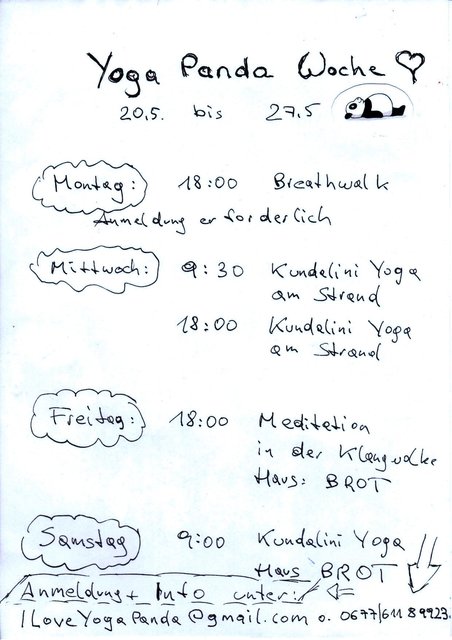 Yoga Panda Woche
20.5. bis 27.5
Montag: 18:00 Breathwalk
Anmeldung erforderlich
Mittwoch: 9:30 Kundalini Yoga
am Strand
18:00 Kundalini Yoga
am Strand
Freitag: 18:00 Meditation
in der Klangwolke
Haus: BROT
Samstag 9:00 Kundalini Yoga
Haus BROT
Anmeldung + Info unter:
ILoveYogaPanda@gmail.com o. 0677/611 89923